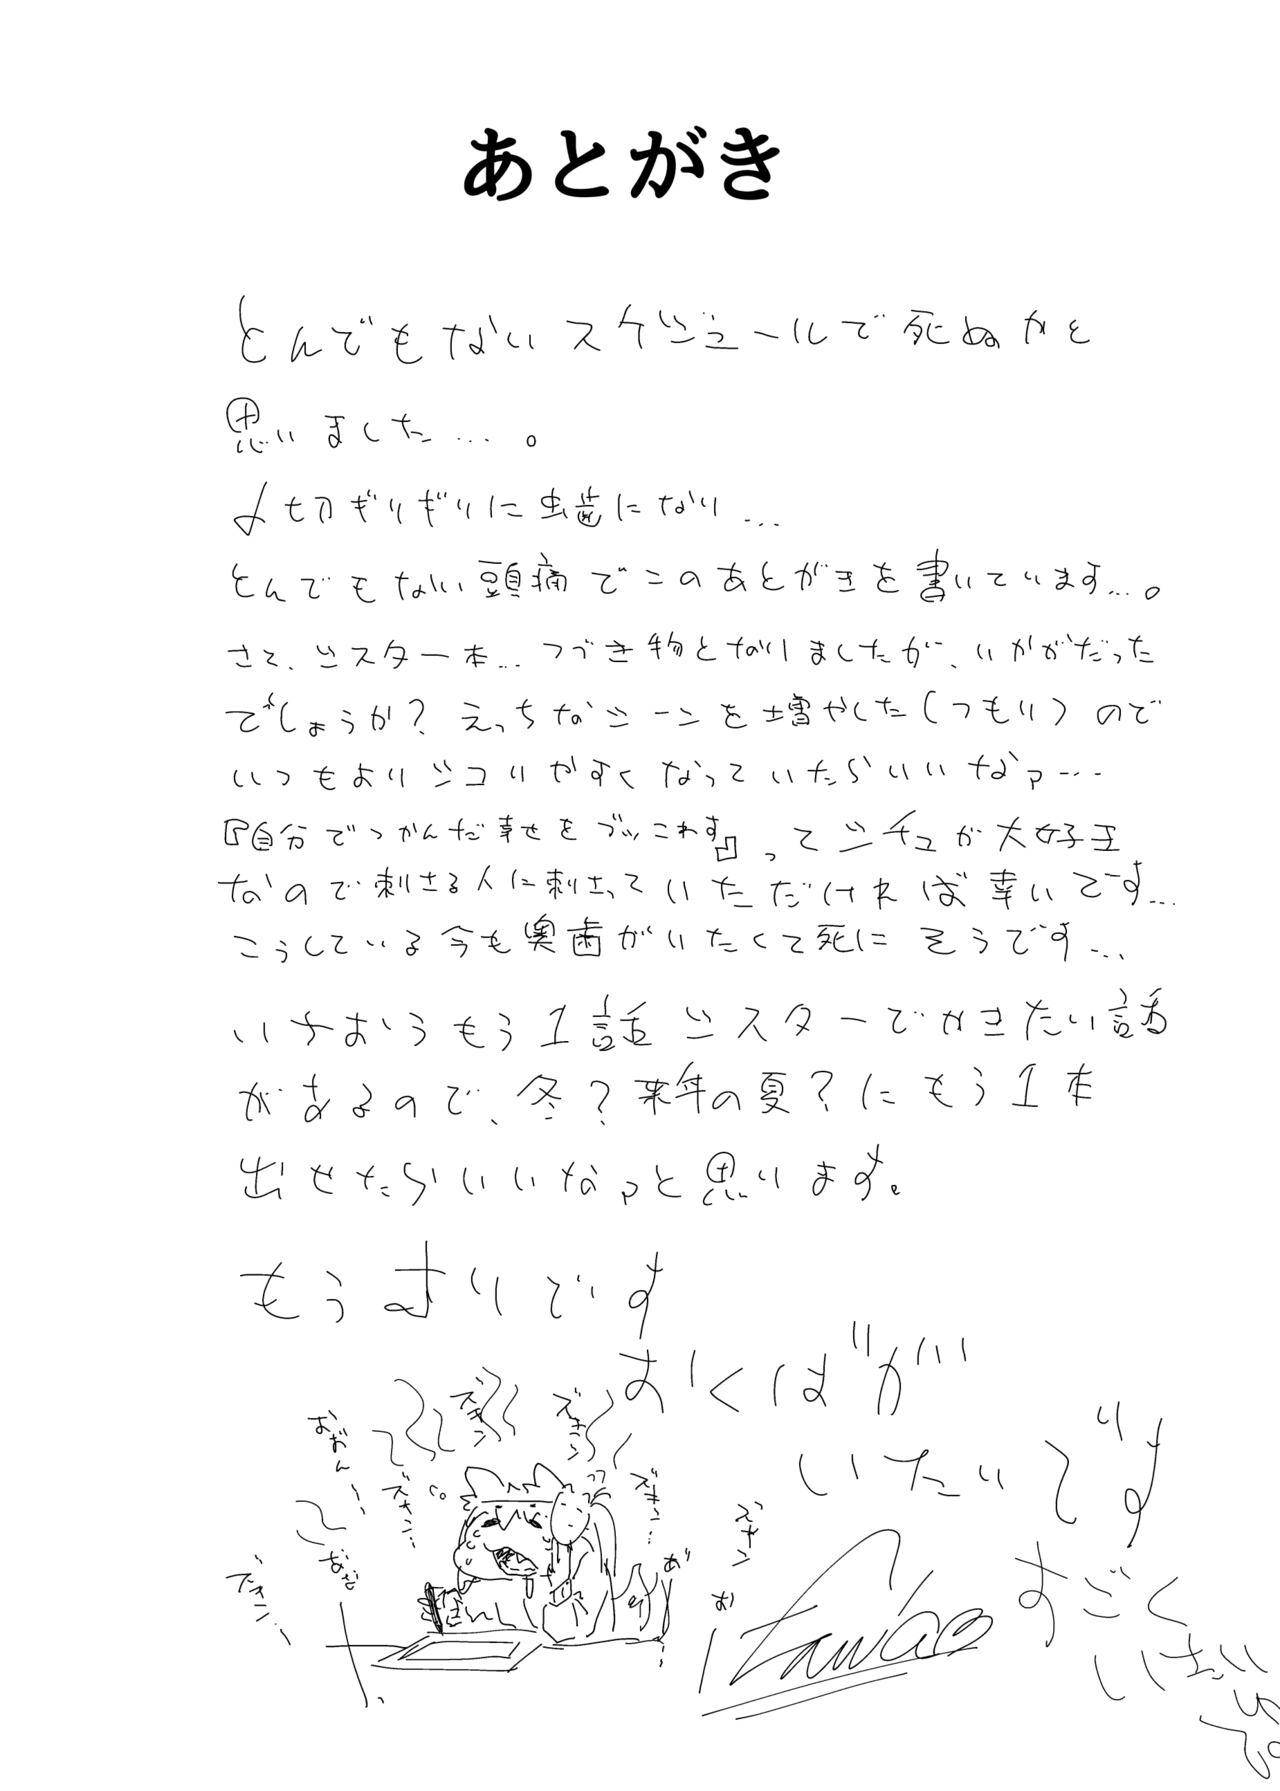 あとがき
とんでもないスケジュールで死ぬかと
思いました…。
〆切ギリギリに虫歯になり…
とんでもない頭痛でこのあとがきを書いています…。
さて、シスター本…つづき物となりましたが、いかがだった
でしょうか？えっちなシーンを増やした（つもり）ので
いつもよりシコりやすくなっていたらいいなァ…
『自分でつかんだ幸せをブッこわす』ってシチュが大好き
なので刺さる人に刺さっていただければ幸いです…
こうしている今も奥歯がいたくて死にそうです…
いちおうもう1話シスターでかきたい話
があるので、冬？来年の夏？にもう1本
出せたらいいなァと思います。
もうムリです
おくばが
いたいです
すごく
いたい
ズキン
ズキン
ズキン…
ズキン…
ズキン
ズキン…
おおん…